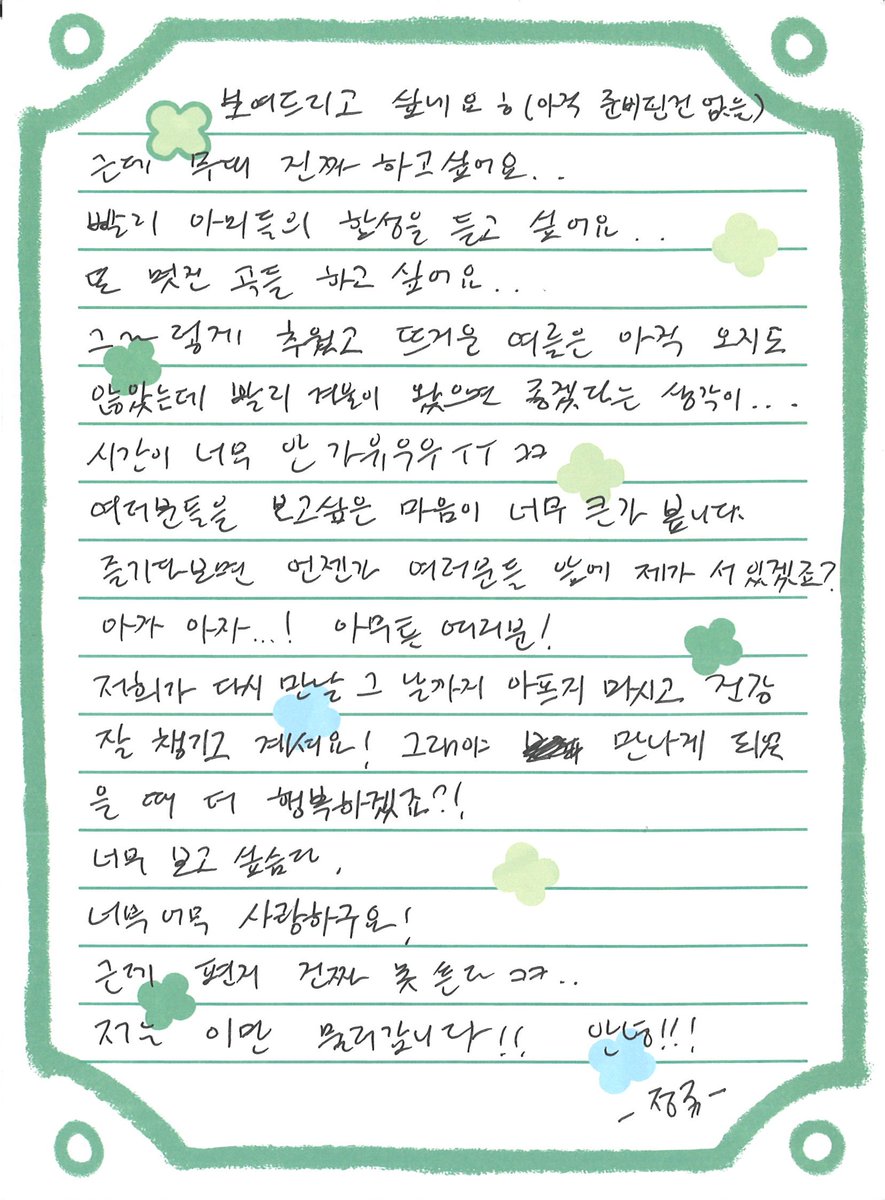 보여드리고 싶네요 ㅎ (아직 준비된건 없음)
근데 무대 진짜 하고싶어요..
빨리 아미들의 함성을 듣고 싶어요...
또 멋진 곡들 하고 싶어요...
그~렇게 추웠고 뜨거운 여름은 아직 오지도
않았는데 빨리 겨울이 왔으면 좋겠다는 생각이....
시간이 너무 안 가유우우 ㅜㅜ ㅋㅋ
여러분들을 보고싶은 마음이 너무 큰가 봅니다.
즐기다보면 언젠가 여러분들 앞에 제가 서 있겠죠?
아자 아자...! 아무튼 여러분!
저희가 다시 만날 그 날까지 아프지 마시고 건강
잘 챙기고 계셔요! 그래야 만나게 되었
을 때 더 행복하겠죠?!
너무 보고 싶습다.
너무 너무 사랑하구요!
근데 편지 진짜 못 쓴다 ㅋㅋ..
저는 이만 물러갑니다!! 안녕!!!
- 정국 -